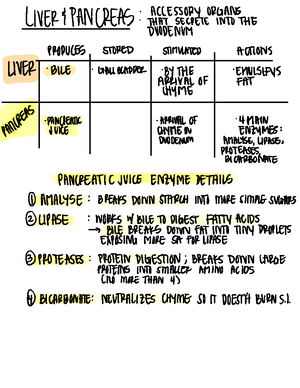 LIVER & PANCREAS: · ACCESSORY ORGANS
· THAT SECRETE INTO THE DUODENUM
PRODUCES STORED STIMULATED ACTIONS
LIVER · BILE · GALL BLADDER · BY THE ARRIVAL OF CHYME · EMULSIFYS FAT
PANCREAS · PANCREATIC JUICE · ARRIVAL OF CHYME IN DUODENUM · 4 MAIN ENZYMES: AMALYSE, LIPASE, PROTEASES, BICARBONATE
PANCREATIC JUICE ENZYME DETAILS
① AMALYSE: BREAKS DOWN STARCH INTO MORE SIMPLE SUGARS
② LIPASE: WORKS W/ BILE TO DIGEST FATTY ACIDS
→ BILE BREAKS DOWN FAT INTO TINY DROPLETS
EXPOSING MORE SA FOR LIPASE
③ PROTEASES: PROTEIN DIGESTION; BREAKS DOWN LARGE
PROTEINS INTO SMALLER AMINO ACIDS
(NO MORE THAN 4)
④ BICARBONATE: NEUTRALIZES CHYME SO IT DOESTN BURN S.I.